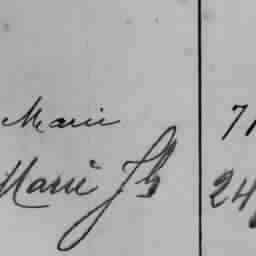 Marie 71
Marie Js 24